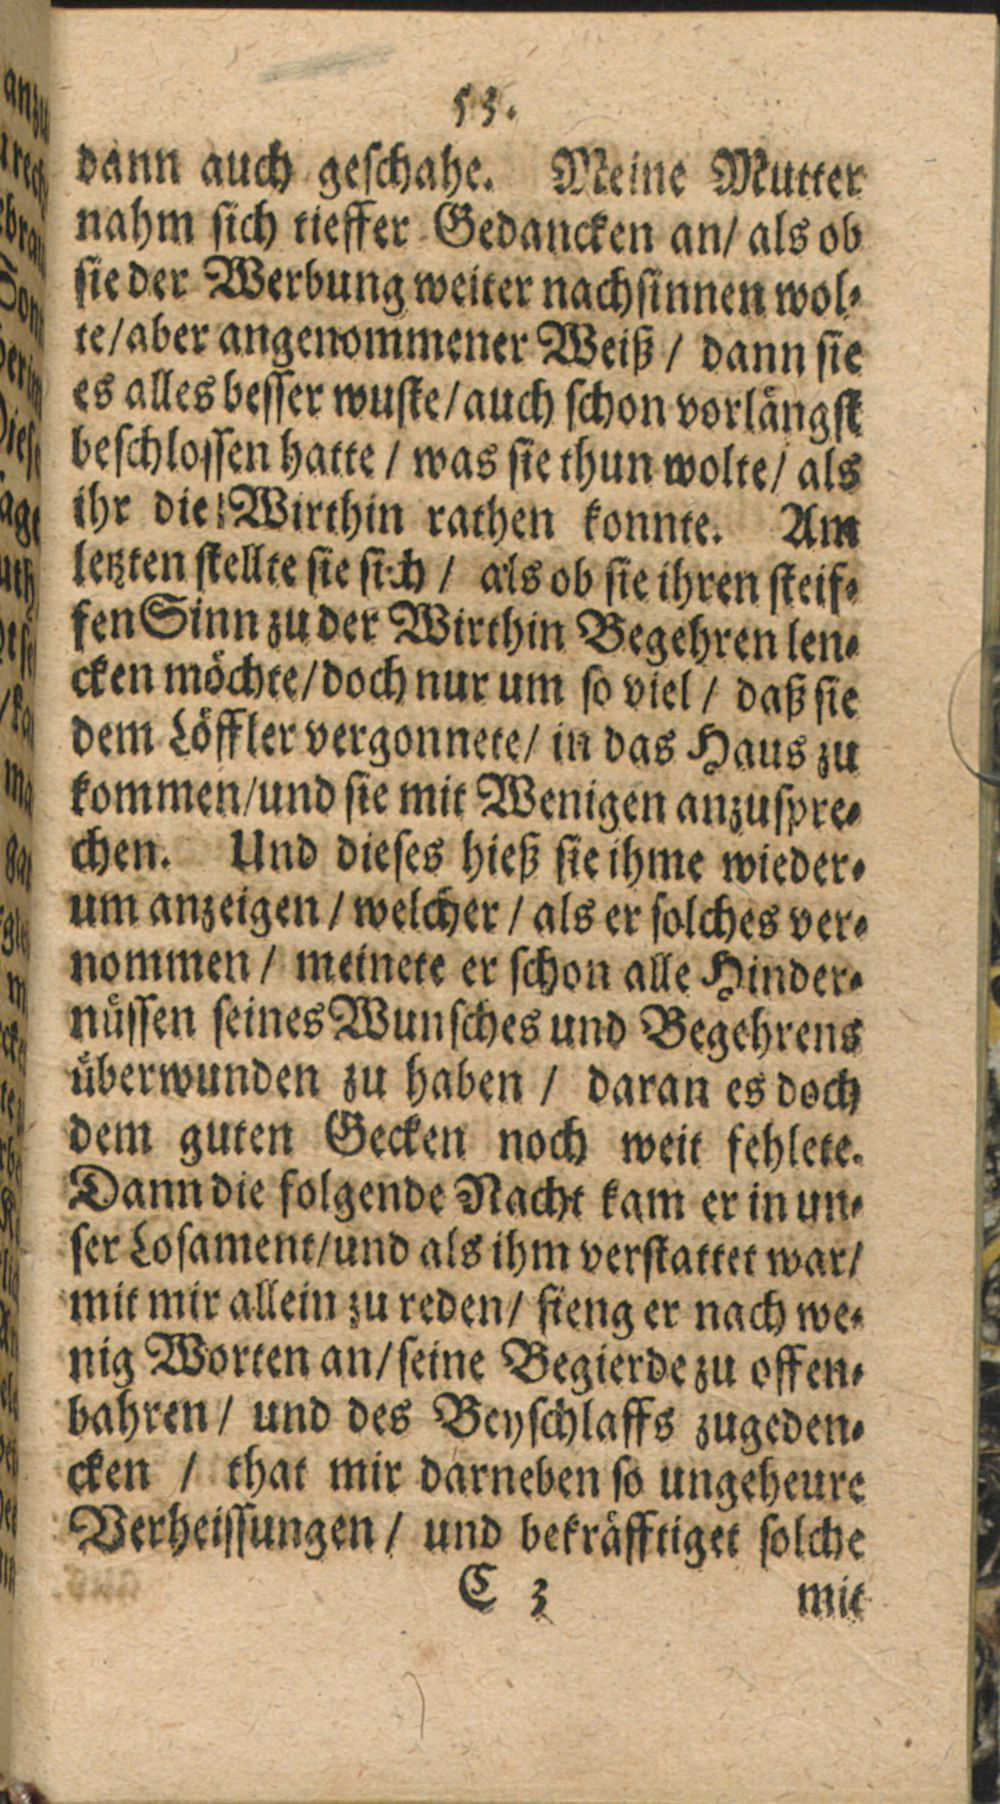 53.
dann auch geschahe. Meine Mutter
nahm sich tieffer Gedancken an/ als ob
sie der Werbung weiter nachsinnen wol-
te/ aber angenommener Weiß / dann sie
es alles besser wuste/ auch schon vorlängst
beschlossen hatte / was sie thun wolte/ als
ihr die Wirthin rathen konnte. Am
letzten stellte sie sich / als ob sie ihren steif-
fen Sinn zu der Wirthin Begehren len-
cken möchte/ doch nur um so viel / daß sie
dem Löffler vergonnete/ in das Haus zu
kommen/ und sie mit Wenigen anzuspre-
chen. Und dieses hieß sie ihme wieder-
um anzeigen / welcher / als er solches ver-
nommen / meinete er schon alle Hinder-
nüssen seines Wunsches und Begehrens
überwunden zu haben / daran es doch
dem guten Gecken noch weit fehlete.
Dann die folgende Nacht kam er in un-
ser Losament/ und als ihm verstattet war/
mit mir allein zu reden/ fieng er nach we-
nig Worten an/ seine Begierde zu offen-
bahren / und des Beyschlaffs zugeden-
cken / that mir darneben so ungeheure
Verheissungen / und bekräfftiget solche
C 3 mit